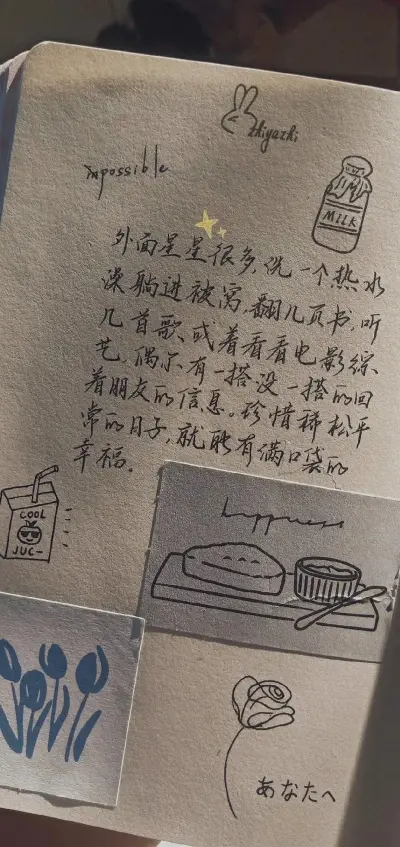 zhiyazhi
impossible
MILK
外面星星很多,洗一个热水
澡躺进被窝,翻几页书,听
几首歌,或着看看电影综
艺,偶尔有一搭没一搭的回
着朋友的信息。珍惜稀松平
常的日子,就能有满口袋的
幸福。
COOL
JUC-
happness
あなたへ